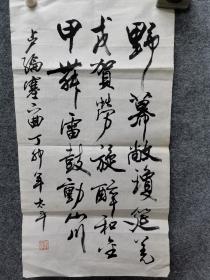 野幕敞瓊筵羌
戎賀勞旋醉和金
甲舞雷鼓動山川
卢綸塞下曲丁卯年太平